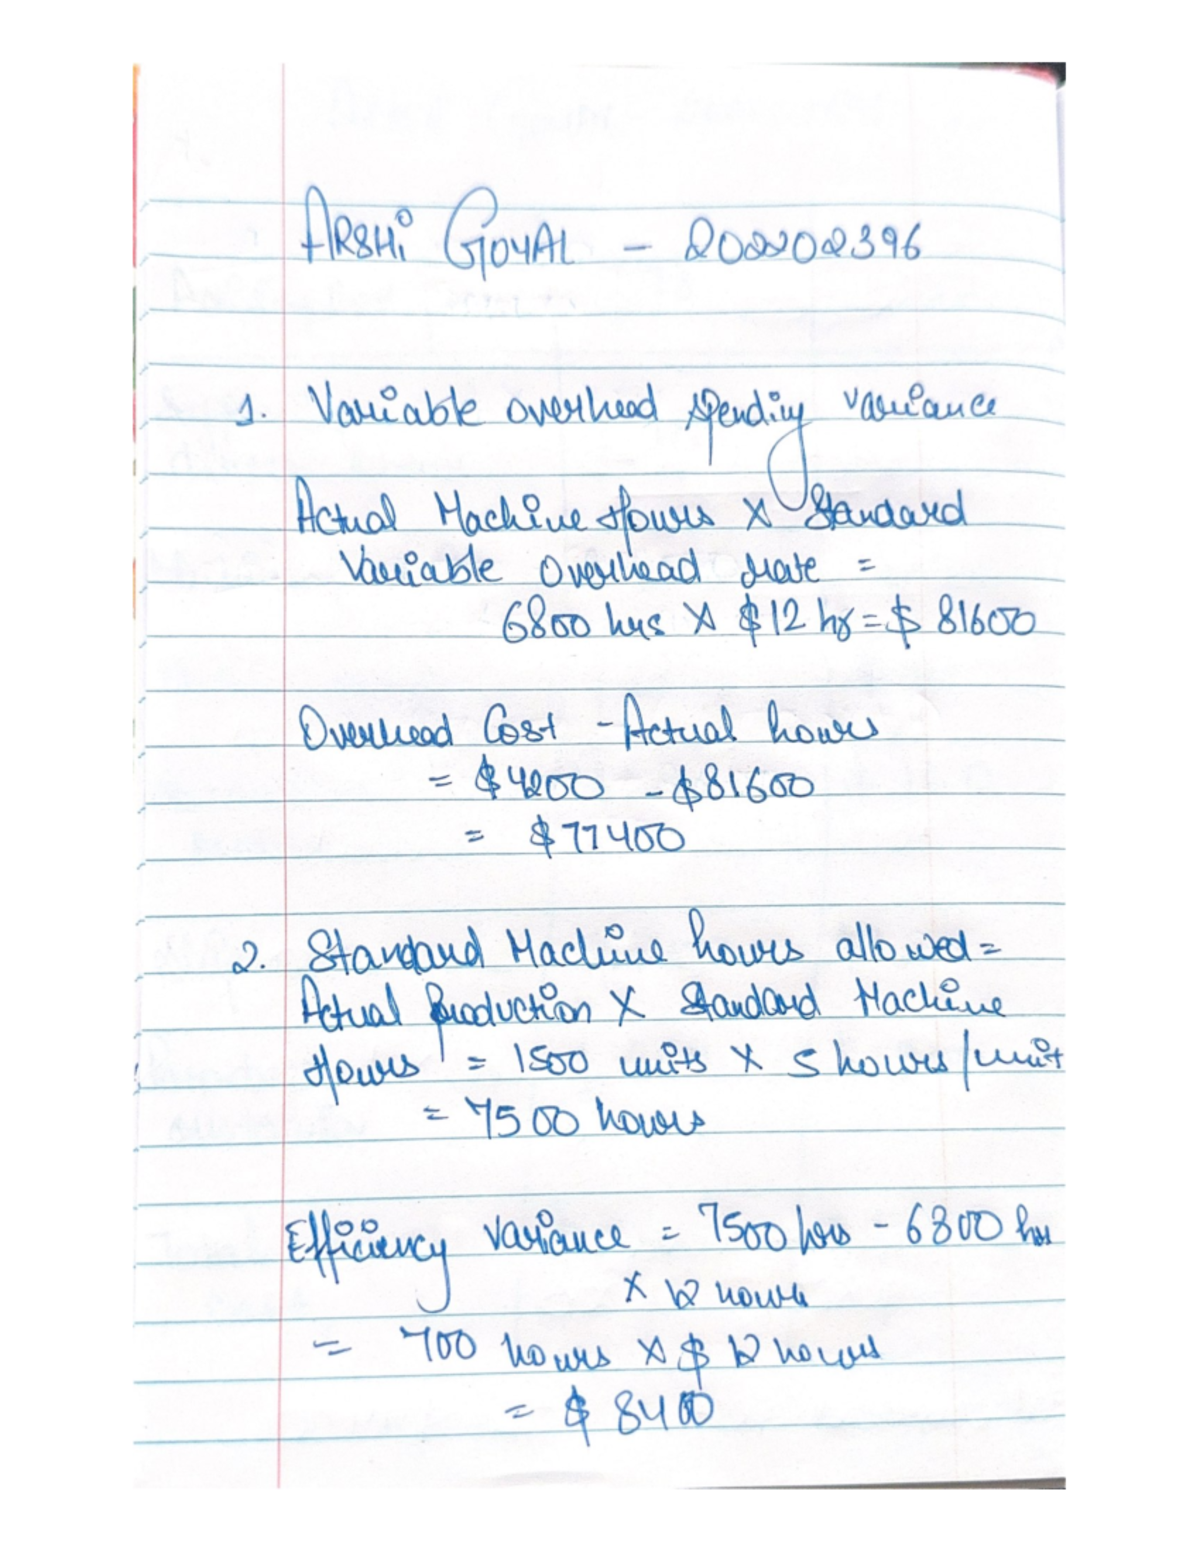 ARSHi GOYAL - 202202396
1. Variable overhead spending variance
Actual Machine Hours X Standard
Variable Overhead rate =
6800 hrs X $12 hr = $ 81600
Overhead Cost - Actual hours
= $4200 - $81600
= $77400
2. Standard Machine hours allowed =
Actual Production X Standard Machine
Hours = 1500 units X 5 hours/unit
= 7500 hours
Efficiency Variance = 7500 hrs - 6800 hrs
X 12 hours
= 700 hours X $ 12 hours
= $ 8400